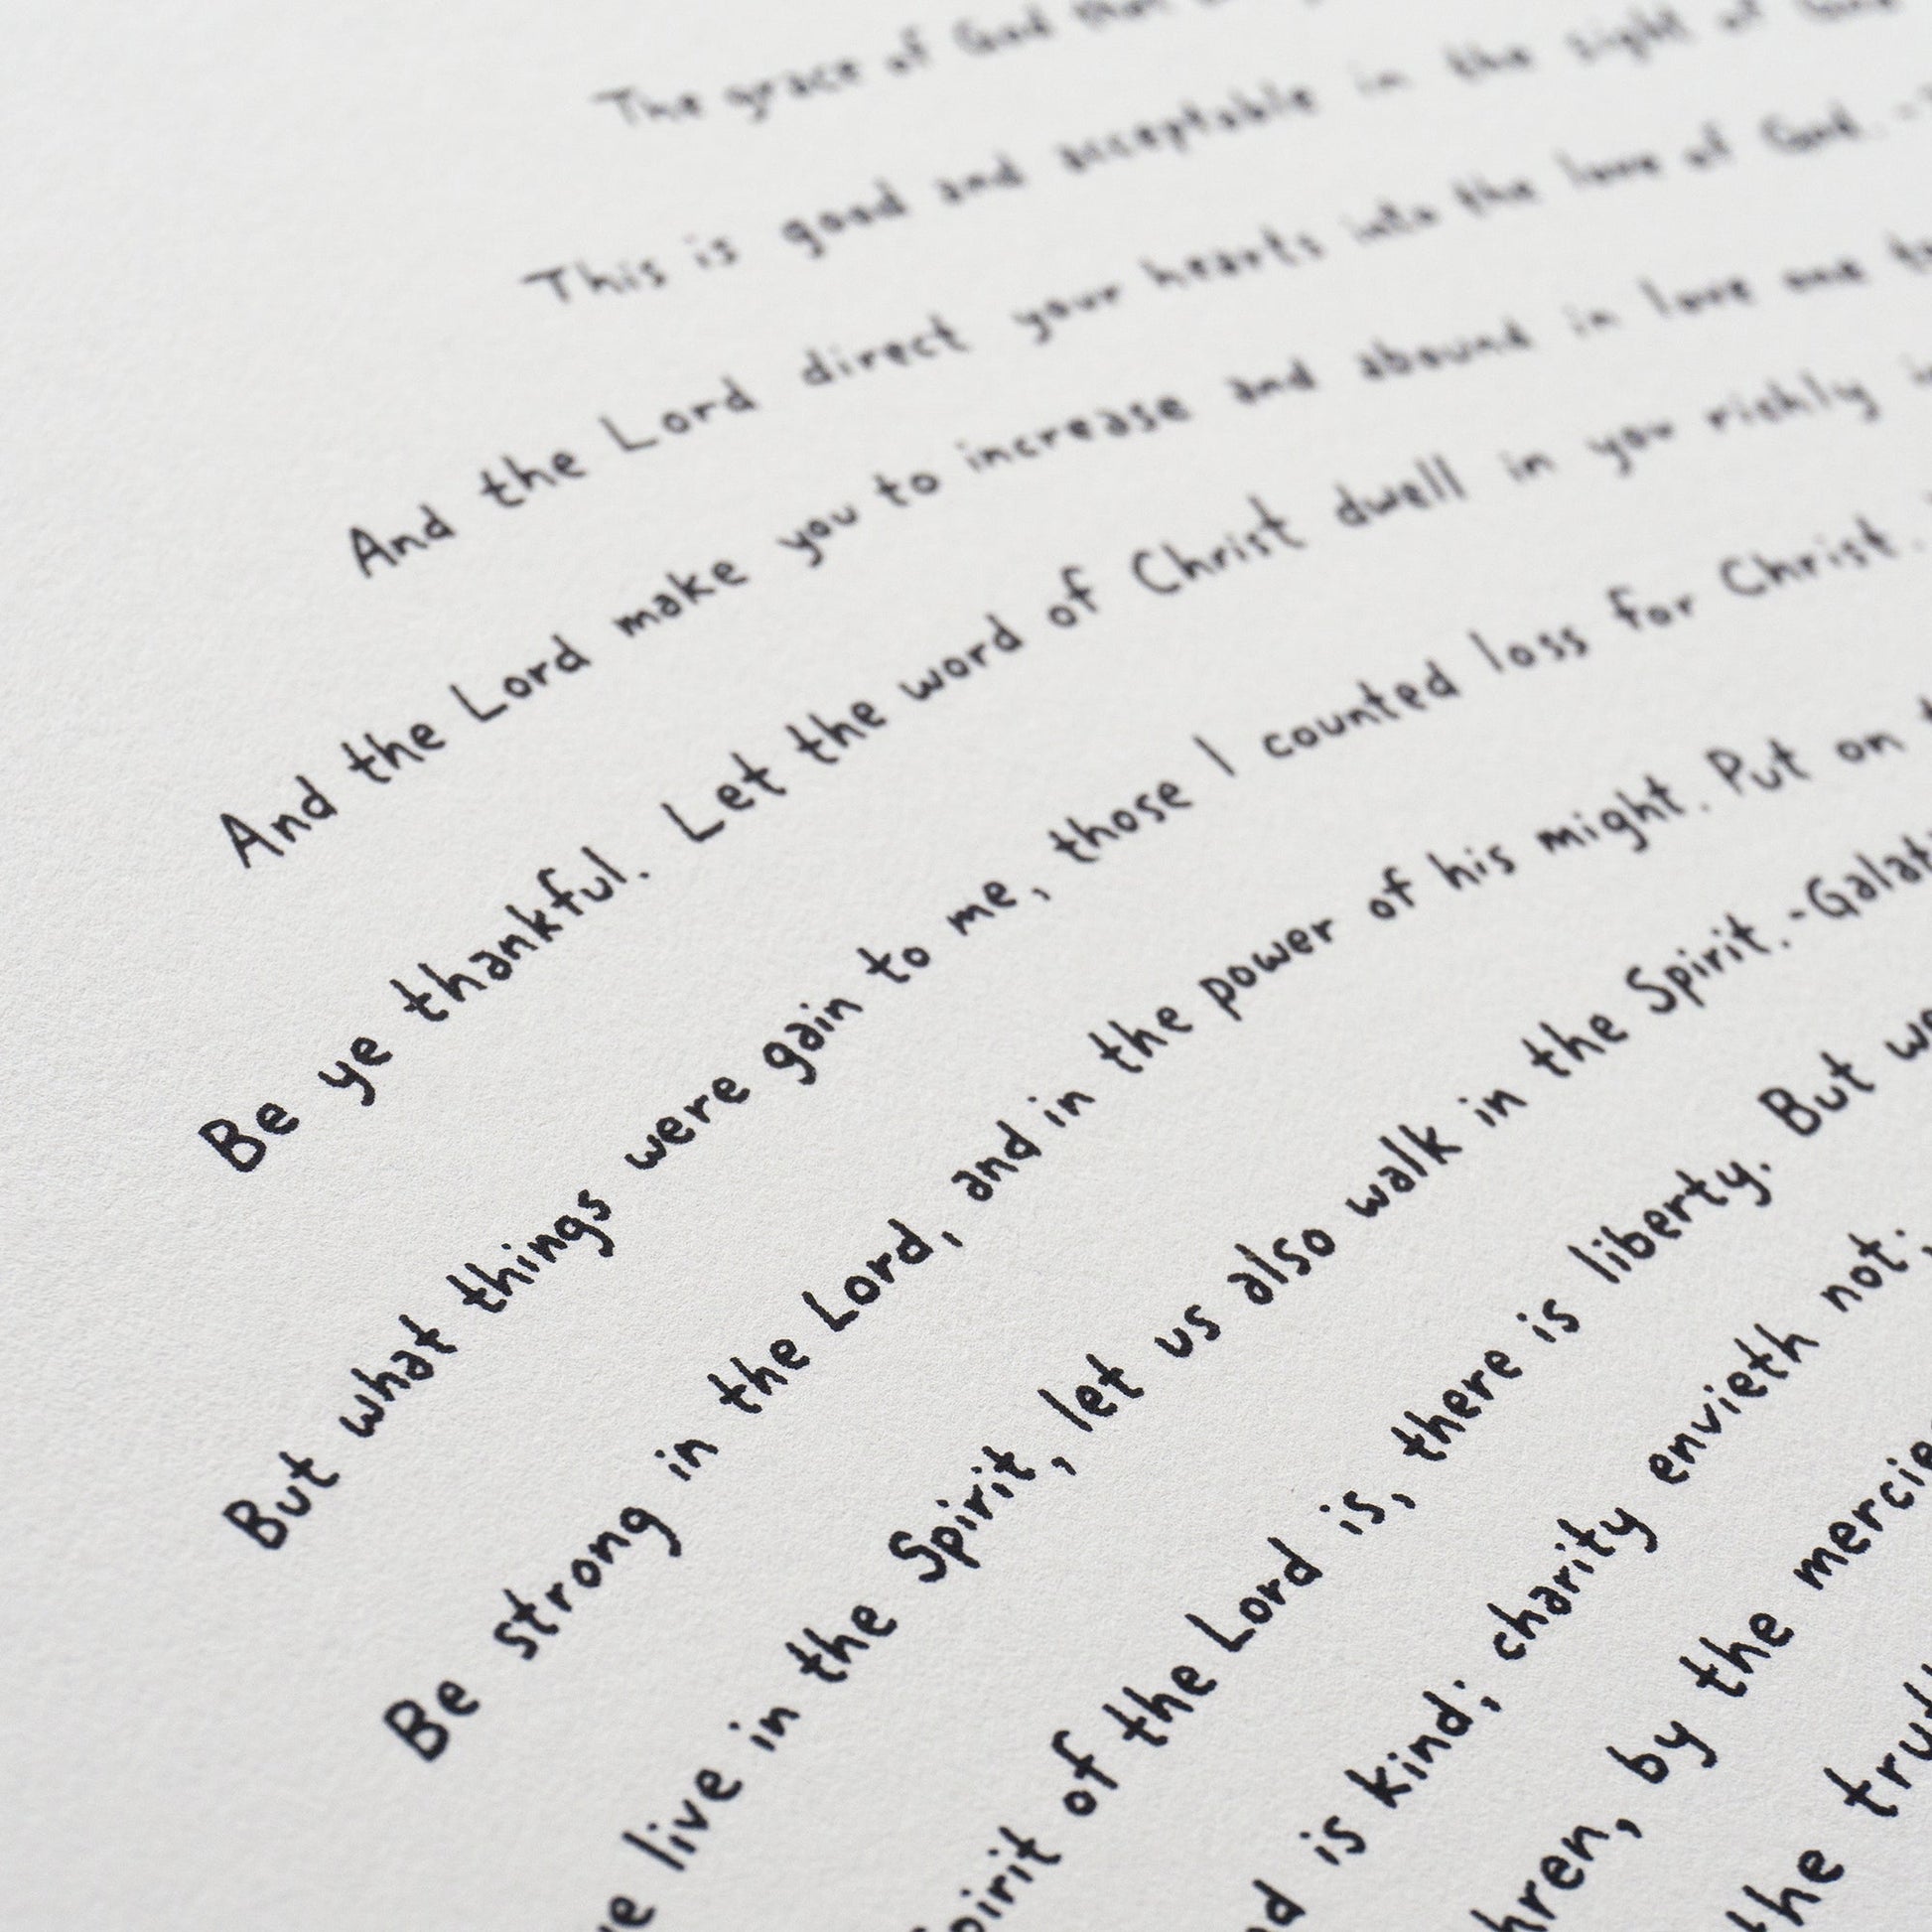 The grace of God that
This is good and acceptable in the sight of God
And the Lord direct your hearts into the love of God. -
And the Lord make you to increase and abound in love one
Be ye thankful. Let the word of Christ dwell in you richly
But what things were gain to me, those I counted loss for Christ.
Be strong in the Lord, and in the power of his might. Put on
live in the Spirit, let us also walk in the Spirit.-Galat
Spirit of the Lord is, there is liberty. But we
is kind; charity envieth not;
hren, by the mercie
the trut